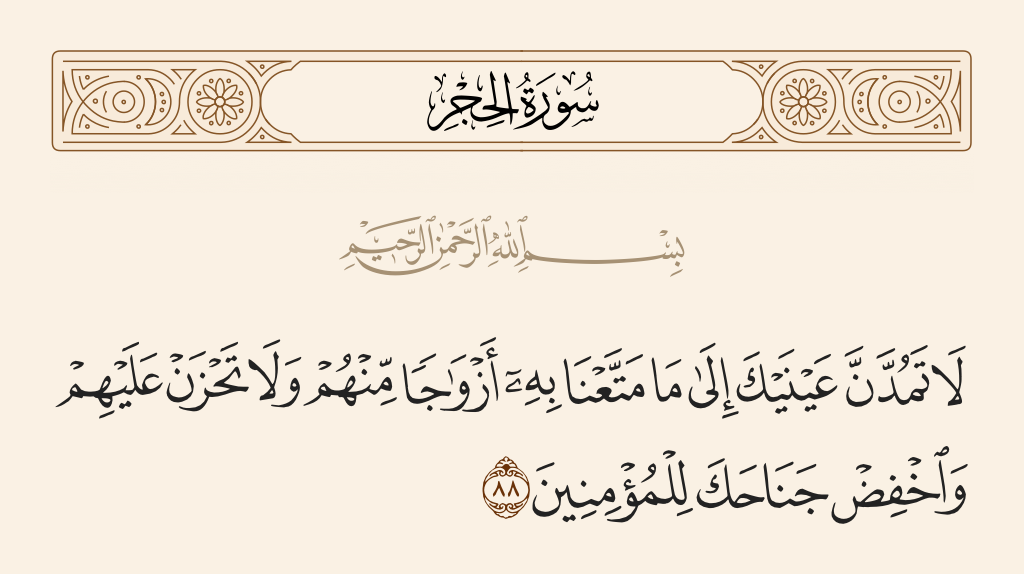 سُورَةُ الحِجْرِ
بِسْمِ ٱللَّهِ ٱلرَّحْمَٰنِ ٱلرَّحِيمِ
لَا تَمُدَّنَّ عَيْنَيْكَ إِلَىٰ مَا مَتَّعْنَا بِهِۦٓ أَزْوَٰجًا مِّنْهُمْ وَلَا تَحْزَنْ عَلَيْهِمْ
وَٱخْفِضْ جَنَاحَكَ لِلْمُؤْمِنِينَ ٨٨